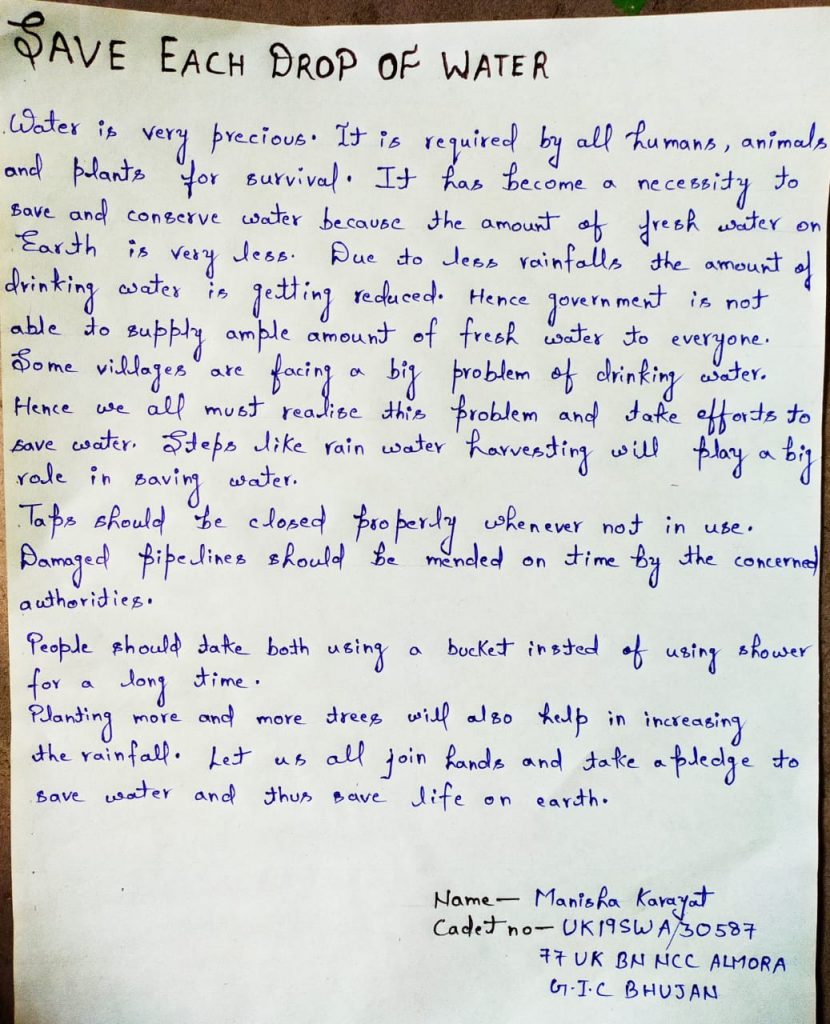 SAVE EACH DROP OF WATER
Water is very precious. It is required by all humans, animals
and plants for survival. It has become a necessity to
save and conserve water because the amount of fresh water on
Earth is very less. Due to less rainfalls the amount of
drinking water is getting reduced. Hence government is not
able to supply ample amount of fresh water to everyone.
Some villages are facing a big problem of drinking water.
Hence we all must realise this problem and take efforts to
save water. Steps like rain water harvesting will play a big
role in saving water.
Taps should be closed properly whenever not in use.
Damaged pipelines should be mended on time by the concerned
authorities.
People should take both using a bucket insted of using shower
for a long time.
Planting more and more trees will also help in increasing
the rainfall. Let us all join hands and take a pledge to
save water and thus save life on earth.
Name— Manisha Karayat
Cadet no— UK19SWA/30587
77 UK BN NCC ALMORA
G.I.C BHUJAN